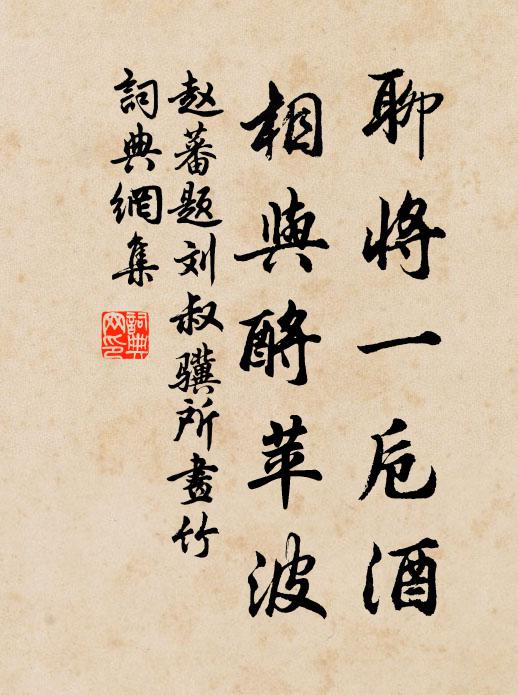 聊将一卮酒
相与酹苹波
赵蕃题刘叔骥所画竹
词典网集
詞典網印